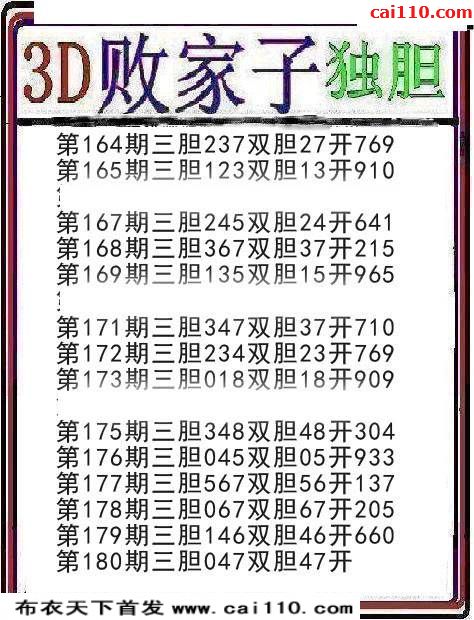 cai110.com
3D败家子独胆
第164期三胆237双胆27开769
第165期三胆123双胆13开910
第167期三胆245双胆24开641
第168期三胆367双胆37开215
第169期三胆135双胆15开965
第171期三胆347双胆37开710
第172期三胆234双胆23开769
第173期三胆018双胆18开909
第175期三胆348双胆48开304
第176期三胆045双胆05开933
第177期三胆567双胆56开137
第178期三胆067双胆67开205
第179期三胆146双胆46开660
第180期三胆047双胆47开
布衣天下首发 www.cai110.com